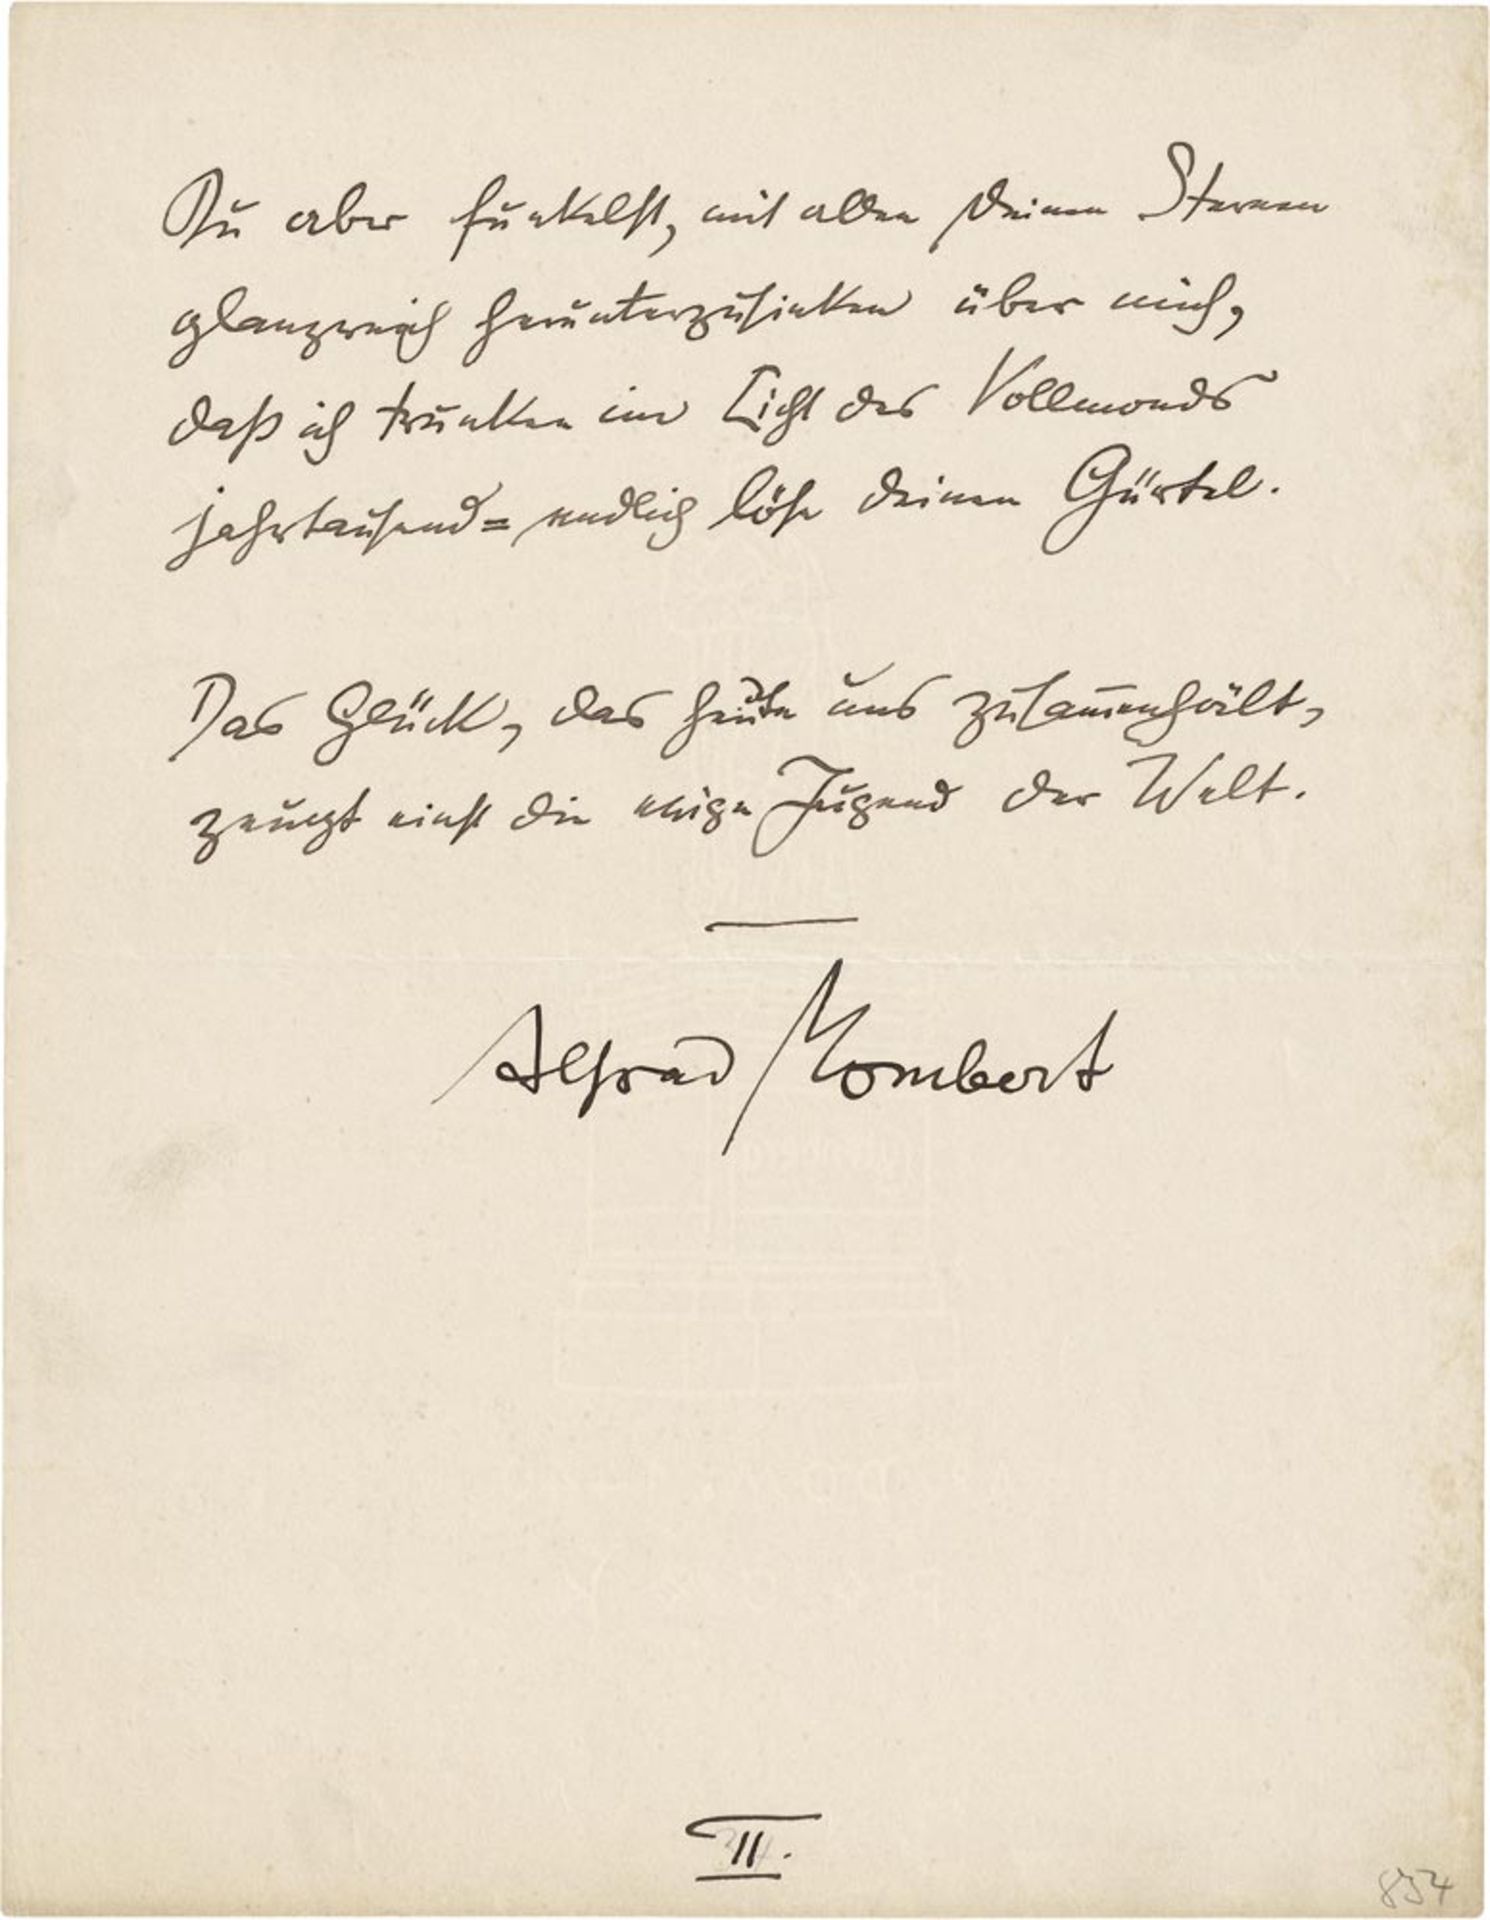 Du aber funkelst, mit allen Deinen Sternen
glanzreich herunterzusinken über mich,
daß ich trunken im Licht des Vollmonds
jahrtausend= endlich löse deinen Gürtel.
Das Glück, das heute uns zusam̅enhält,
zeugt einst die ewige Jugend der Welt.
Alfred Mombert
II.
834